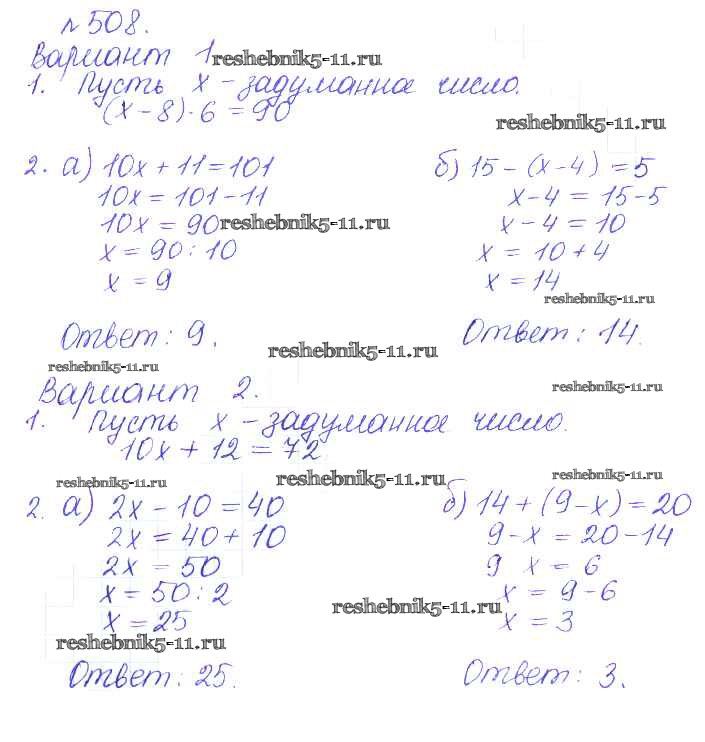 №508.
Вариант 1 reshebnik5-11.ru
1. Пусть x - задуманное число.
(x-8)·6=90
reshebnik5-11.ru
2. а) 10x+11=101
10x=101-11
10x=90 reshebnik5-11.ru
x=90:10
x=9
Ответ: 9.
б) 15-(x-4)=5
x-4=15-5
x-4=10
x=10+4
x=14
reshebnik5-11.ru
Ответ: 14.
reshebnik5-11.ru
reshebnik5-11.ru
Вариант 2.
reshebnik5-11.ru
1. Пусть x - задуманное число.
10x+12=72
reshebnik5-11.ru
reshebnik5-11.ru
reshebnik5-11.ru
2. а) 2x-10=40
2x=40+10
2x=50
x=50:2
x=25
reshebnik5-11.ru
Ответ: 25.
б) 14+(9-x)=20
9-x=20-14
9 x=6
x=9-6
reshebnik5-11.ru
x=3
Ответ: 3.